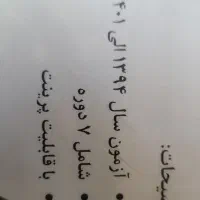 یحات:
• آزمون سال ۱۳۹۴ الی ۴۰۱
• شامل ۷ دوره
• با قابلیت پرینت